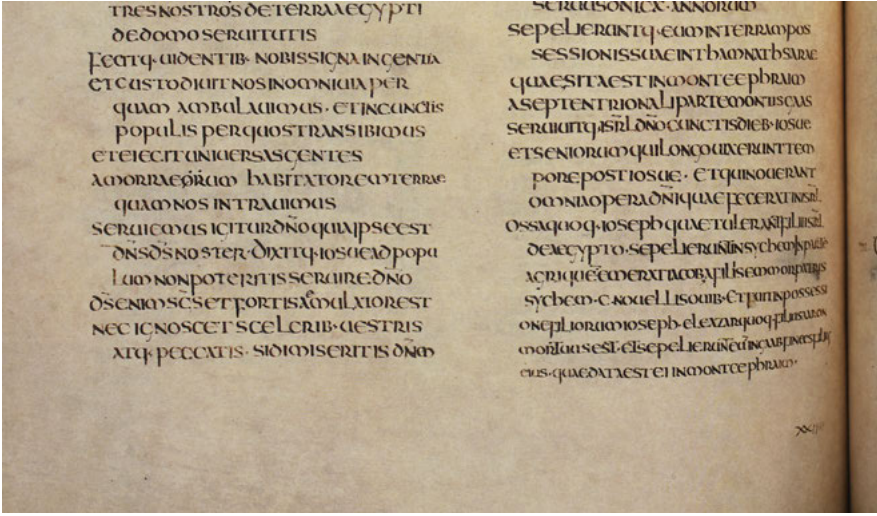 TRES NOSTROS DE TERRA AEGYPTI
DE DOMO SERUITUTIS
FECITQ· UIDENTIB· NOBIS SIGNA INGENTIA
ET CUSTODIUIT NOS IN OMNI UIA PER
QUAM AMBULAUIMUS · ET IN CUNCTIS
POPULIS PER QUOS TRANSIBIMUS
ET EIECIT UNIUERSAS GENTES
AMORRAEORUM HABITATOREM TERRAE
QUAM NOS INTRAUIMUS
SERUIEMUS IGITUR DÑO QUIA IPSE EST
DÑS D̄S NOSTER · DIXITQ· IOSUE AD POPU
LUM NON POTERITIS SERUIRE DÑO
D̄S ENIM SC̄S ET FORTIS AEMULATOR EST
NEC IGNOSCET SCELERIB· UESTRIS
ATQ· PECCATIS · SI DIMISERITIS DÑM
SERUUS DÑI CX · ANNORUM
SEPELIERUNTQ· EUM IN TERRA MPOS
SESSIONIS SUAE IN THAMNATHSARAE
QUAE SITA EST IN MONTE EPHRAIM
A SEPTENTRIONALI PARTE MONTIS GAAS
SERUIUITQ· ISRL DÑO CUNCTIS DIEB· IOSUE
ET SENIORUM QUI LONGO UIXERUNT TEM
PORE POST IOSUE · ET QUI NOUERANT
OMNIA OPERA DÑI QUAE FECERAT IN ISRL
OSSA QUOQ· IOSEPH QUAE TULERANT FILII ISRL
DE AEGYPTO · SEPELIERUNT IN SYCHEM IN PARTE
AGRI QUEM EMERAT IACOB A FILIIS EMMOR PATRIS
SYCHEM · C · NOUELLIS OUIB · ET FUIT IN POSSESSI
ONE FILIORUM IOSEPH · ELEAZAR QUOQ· FILIUS AARON
MORTUUS EST · ET SEPELIERUNT EUM IN GAAB FINEES FILII
EIUS · QUAE DATA EST EI IN MONTE EPHRAIM ·